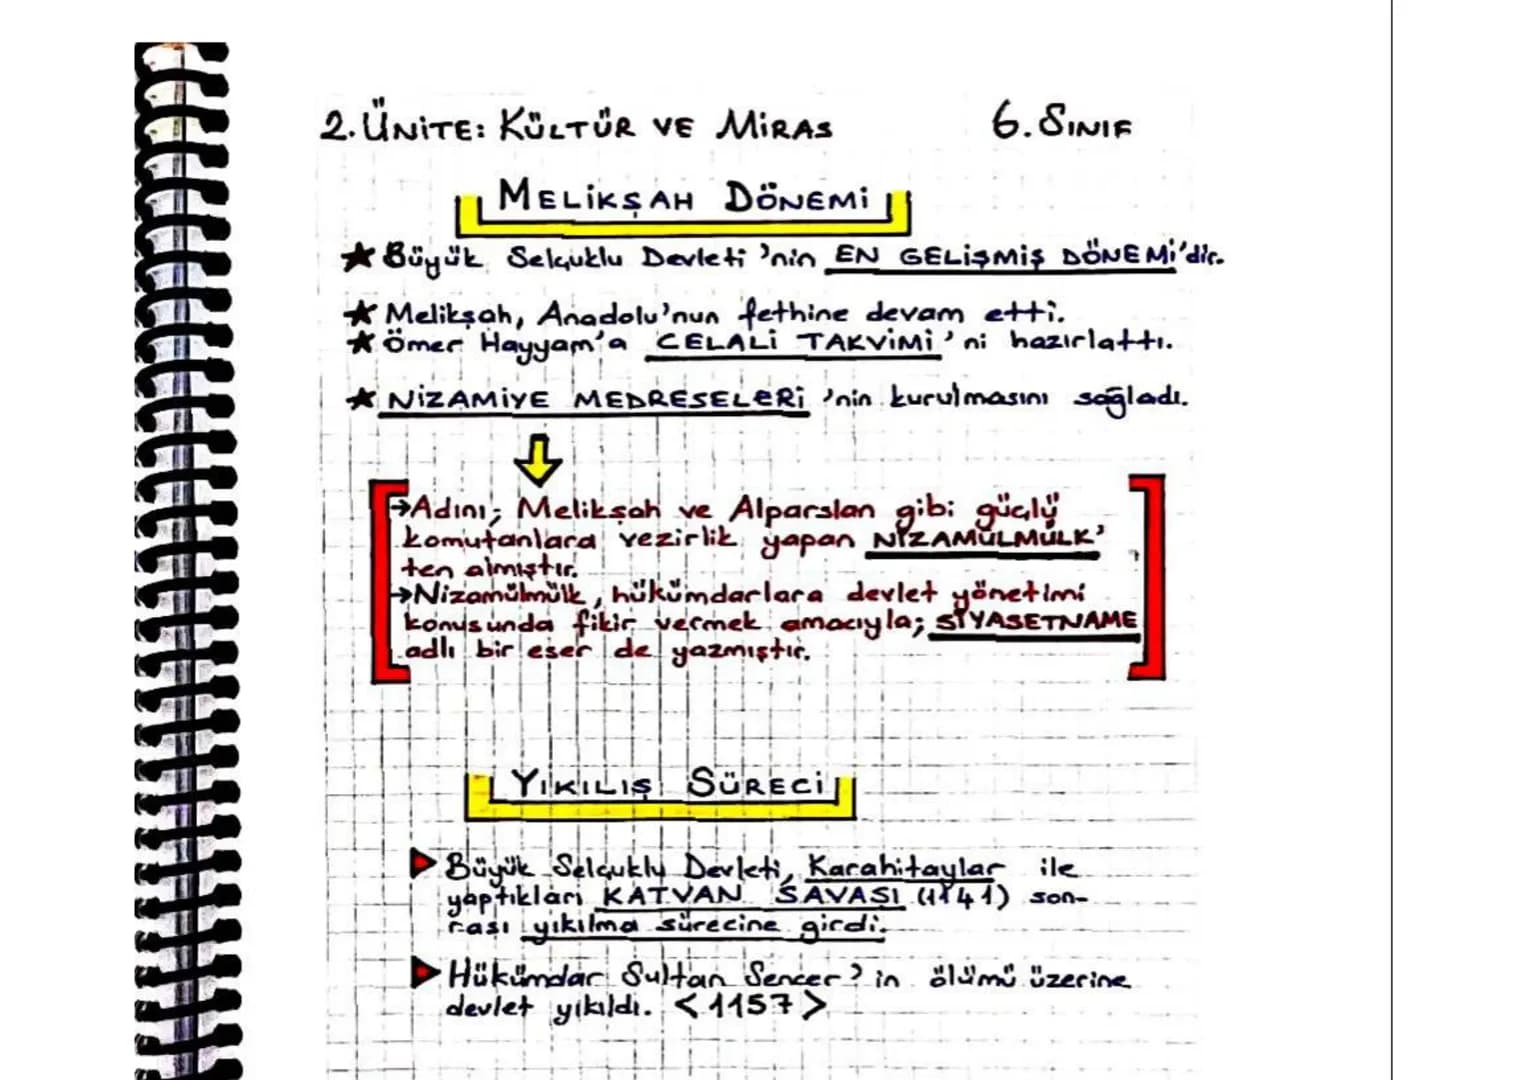 2. ÜNİTE: KÜLTÜR VE MİRAS 6. SINIF
MELİKŞAH DÖNEMİ
★ Büyük Selçuklu Devleti'nin EN GELİŞMİŞ DÖNEMİ'dir.
★ Melikşah, Anadolu'nun fethine devam etti.
★ Ömer Hayyam'a CELALİ TAKVİMİ'ni hazırlattı.
★ NİZAMİYE MEDRESELERİ'nin kurulmasını sağladı.
→ Adını; Melikşah ve Alparslan gibi güçlü
komutanlara vezirlik yapan NİZAMÜLMÜLK'
ten almıştır.
→ Nizamülmülk, hükümdarlara devlet yönetimi
konusunda fikir vermek amacıyla; SİYASETNAME
adlı bir eser de yazmıştır.
YIKILIŞ SÜRECİ
Büyük Selçuklu Devleti, Karahitaylar ile
yaptıkları KATVAN SAVAŞI (1141) son-
rası yıkılma sürecine girdi.
Hükümdar Sultan Sencer'in ölümü üzerine
devlet yıkıldı. <1157>